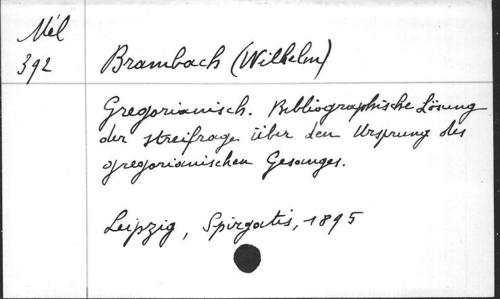 Mél
392
Brambach (Wilhelm)
Gregorianisch. Bibliographische Lösung
der streifrage über den Ursprung des
gregorianischen Gesanges.
Leipzig, Spirgatis, 1895